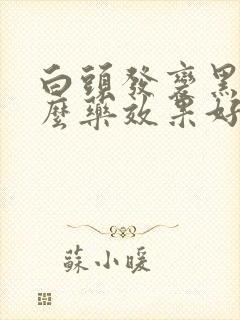 白頭發變黑
麼藥效果好
蘇小暖